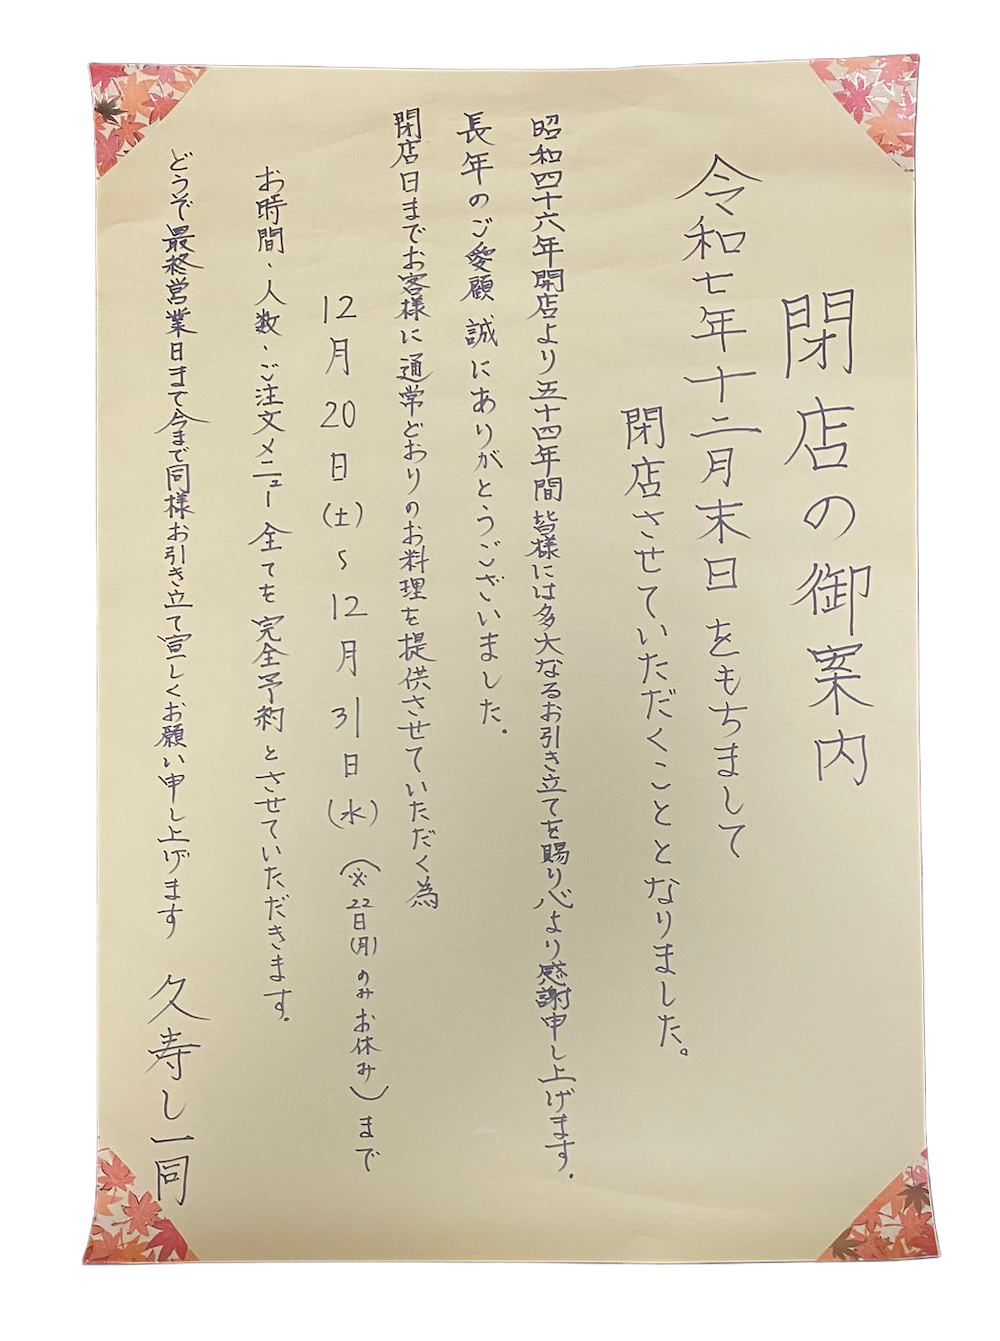 閉店の御案内
令和七年十二月末日をもちまして
閉店させていただくこととなりました。
昭和四十六年開店より五十四年間 皆様には多大なるお引き立てを賜り心より感謝申し上げます。
長年のご愛顧 誠にありがとうございました。
閉店日までお客様に通常どおりのお料理を提供させていただく為
12月20日(土)~12月31日(水)(※22日(月)のみお休み)まで
お時間・人数・ご注文メニュー 全てを 完全予約とさせていただきます。
どうぞ最終営業日まで今まで同様お引き立て宜しくお願い申し上げます 久寿し一同